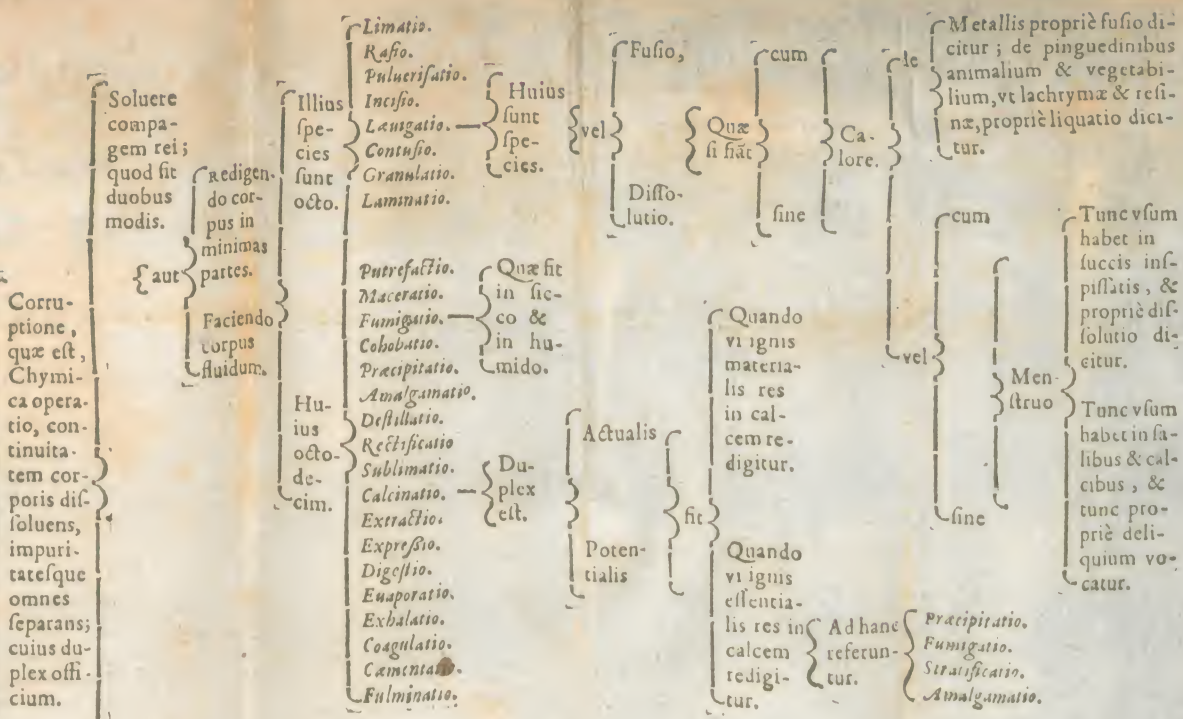 Corru-
ptione,
quæ eſt,
Chymi-
ca opera-
tio, con-
tinuita-
tem cor-
poris diſ-
ſoluens,
impuri-
tateſque
omnes
ſeparans;
cuius du-
plex offi-
cium.
Soluere
compa-
gem rei;
quod fit
duobus
modis.
aut
Redigen-
do cor-
pus in
minimas
partes.
Faciendo
corpus
fluidum.
Illius
ſpe-
cies
ſunt
octo.
Hu-
ius
octo-
de-
cim.
Limatio.
Raſio.
Pulueriſatio.
Inciſio.
Læuigatio.
Contuſio.
Granulatio.
Laminatio.
Putrefactio.
Maceratio.
Fumigatio.
Cohobatio.
Præcipitatio.
Amalgamatio.
Deſtillatio.
Rectificatio
Sublimatio.
Calcinatio.
Extractio.
Expreßio.
Digeſtio.
Euaporatio.
Exhalatio.
Coagulatio.
Cæmentatio.
Fulminatio.
Huius
ſunt
ſpe-
cies.
vel
Fuſio,
Diſſo-
lutio.
Quæ
ſi fiāt
cum
ſine
Ca-
lore.
de
Metallis propriè fuſio di-
citur; de pinguedinibus
animalium & vegetabi-
lium, vt lachrymæ & reſi-
næ, propriè liquatio dici-
tur.
vel
cum
ſine
Men-
ſtruo
Tunc vſum
habet in
ſuccis inſ-
piſſatis, &
propriè diſ-
ſolutio di-
citur.
Tunc vſum
habet in ſa-
libus & cal-
cibus, &
tunc pro-
priè deli-
quium vo-
catur.
Quæ fit
in ſic-
co &
in hu-
mido.
Du-
plex
eſt.
Actualis
Poten-
tialis
fit
Quando
vi ignis
materia-
lis res
in cal-
cem re-
digitur.
Quando
vi ignis
eſſentia-
lis res in
calcem
redigi-
tur.
Ad hanc
referun-
tur.
Præcipitatio.
Fumigatio.
Stratificatio.
Amalgamatio.